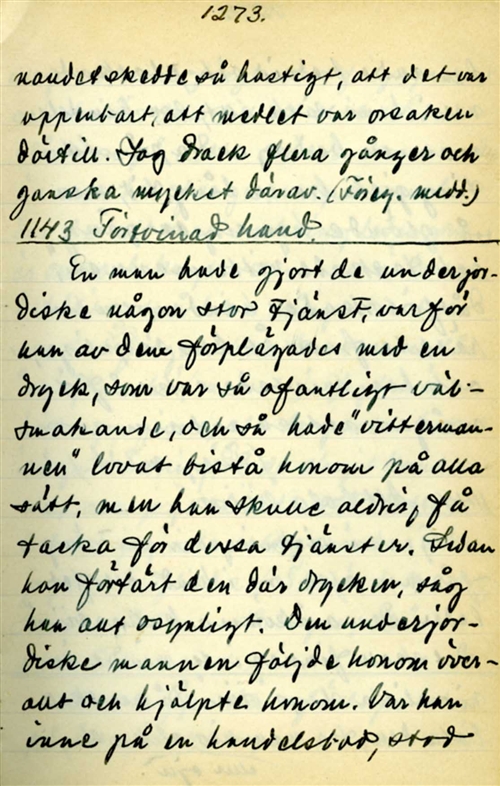 1273.
nandet skedde så hastigt, att det var
uppenbart, att medlet var orsaken
därtill. Jag drack flera gånger och
ganska mycket därav. (Föreg. medd.)
1143 Förtvinad hand.
En man hade gjort de underjor-
diske någon stor tjänst, varför
han av dem förplägades med en
dryck, som var så ofantligt väl-
smakande, och så hade "vitterman-
nen" lovat bistå honom på alla
sätt, men han skulle aldrig få
tacka för dessa tjänster. Sedan
han förtärt den där drycken, såg
han allt osynligt. Den underjor-
diske mannen följde honom över-
allt och hjälpte honom. Var han
inne på en handelsbod, stod